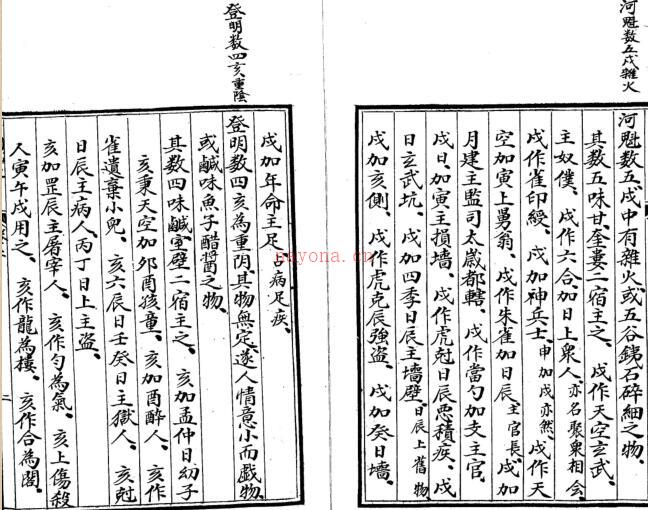 河魁数五戌雜火
河魁数五戌中有雜火或五谷銕石碎細之物
其数五味甘奎婁二宿主之戌作天空玄武
主奴僕戌作六合加日上衆人亦名聚衆相会
戌作雀印綬戌加神兵士申加戌亦然戌作天
空加寅上舅翁戌作朱雀加日辰主官長戌加
月建主監司太歲都轄戌作當勺加支主官
戌日加寅主損墙戌作虎尅日辰悪積疾戌
日玄武坑戌加四季日辰主墻壁日辰上舊物
戌加亥側戌作虎克辰強盗戌加癸日墻
登明数四亥重陰
戌加年命主足占病足疾
登明数四亥為重阴其物無定遂人情意小而戯物
或鹹味魚子酷醤之物
其数四味鹹室壁二宿主之亥加孟仲日幼子
亥秉天空加夘酉孩童亥加酉醉人亥作
雀遺棄小兒亥六辰日壬癸日主獄人亥尅
日辰主病人丙丁日上主盗
亥加罡辰主屠宰人亥作勺為氣亥上傷殺
人寅午戌用之亥作龍為楼亥作合為閣
nayona.cn